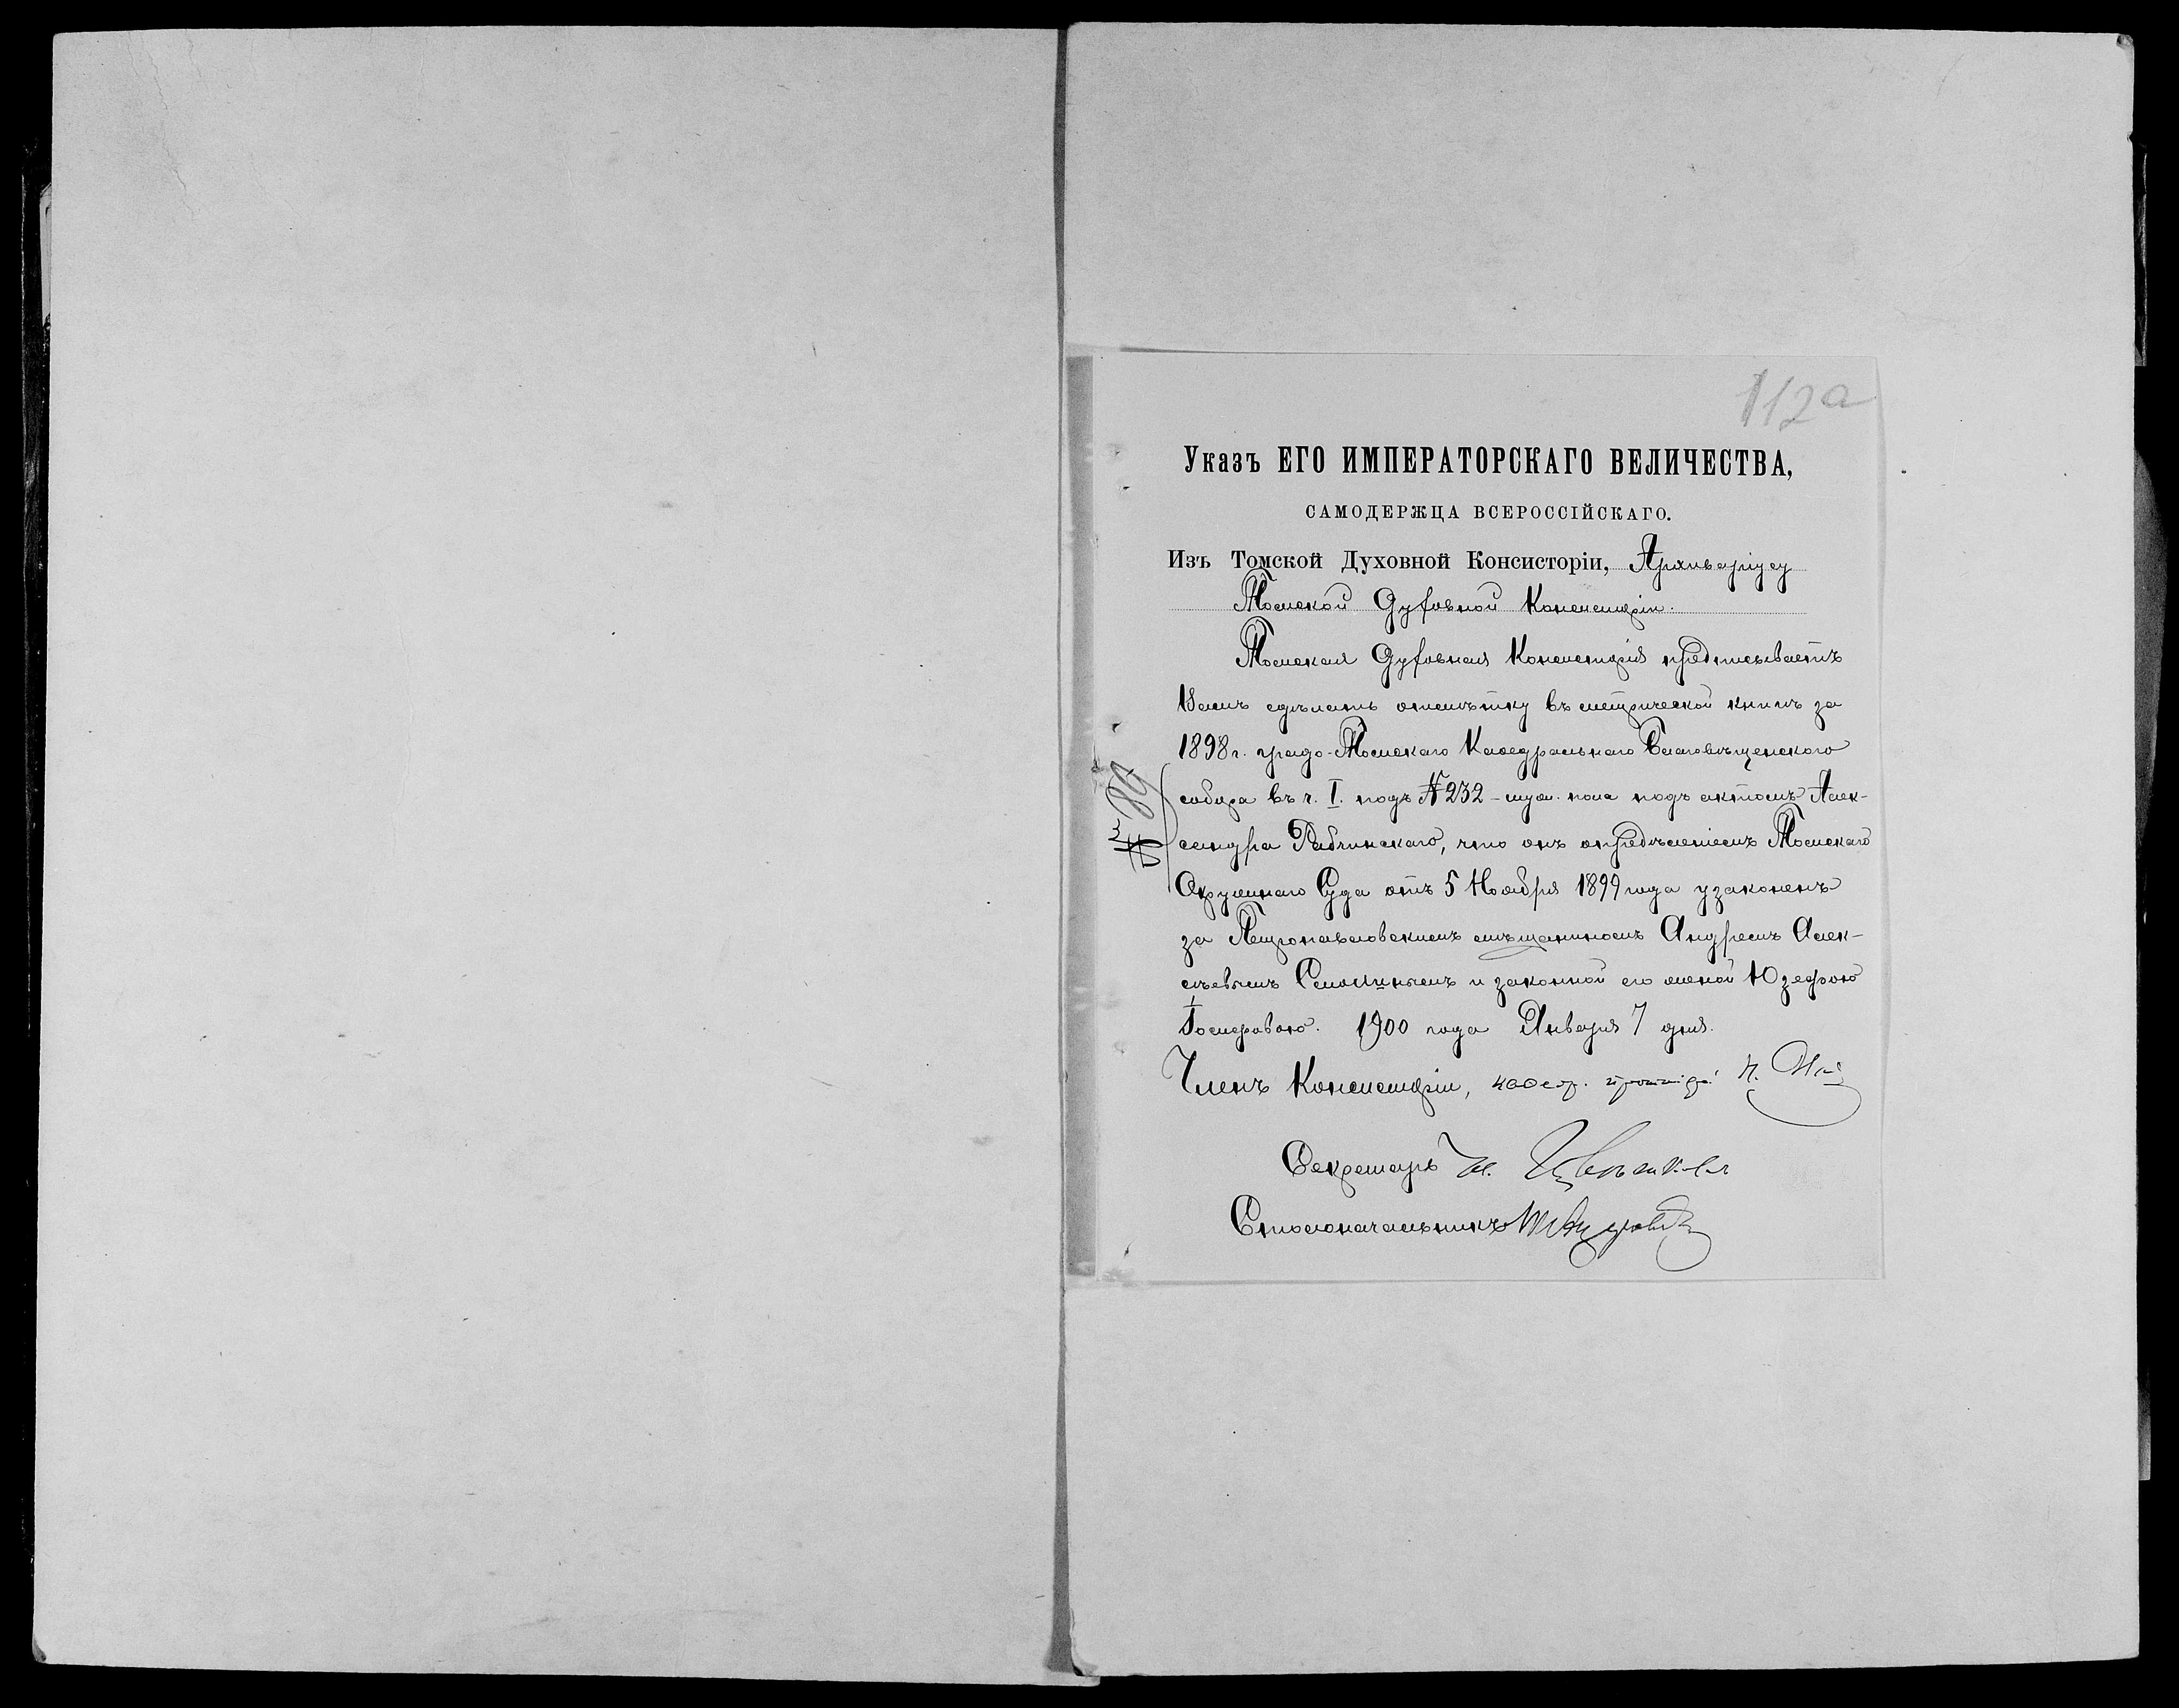 112а
Указъ ЕГО ИМПЕРАТОРСКАГО ВЕЛИЧЕСТВА,
САМОДЕРЖЦА ВСЕРОССІЙСКАГО.
Изъ Томской Духовной Консисторіи, Архиваріусу
Томской Духовной Консисторіи.
Томская Духовная Консисторія предписываетъ
Вамъ сдѣлать отмѣтку въ метрической книгѣ за
1898 г. градо-Томскаго Каѳедральнаго Благовѣщенского
собора въ ч. I. подъ № 232 - муж. пола подъ актомъ Алек-
сандра Рабчинскаго, что онъ опредѣленіемъ Томскаго
Окружнаго Суда отъ 5 Ноября 1899 года узаконенъ
за Петропавловскимъ мѣщаниномъ Андреемъ Алек-
сѣевымъ и законной его женой Юзефою
1900 года Января 7 дня.
Членъ Консисторіи, каѳедр. протоіер. Н.
Секретарь
Столоначальникъ
№ 89